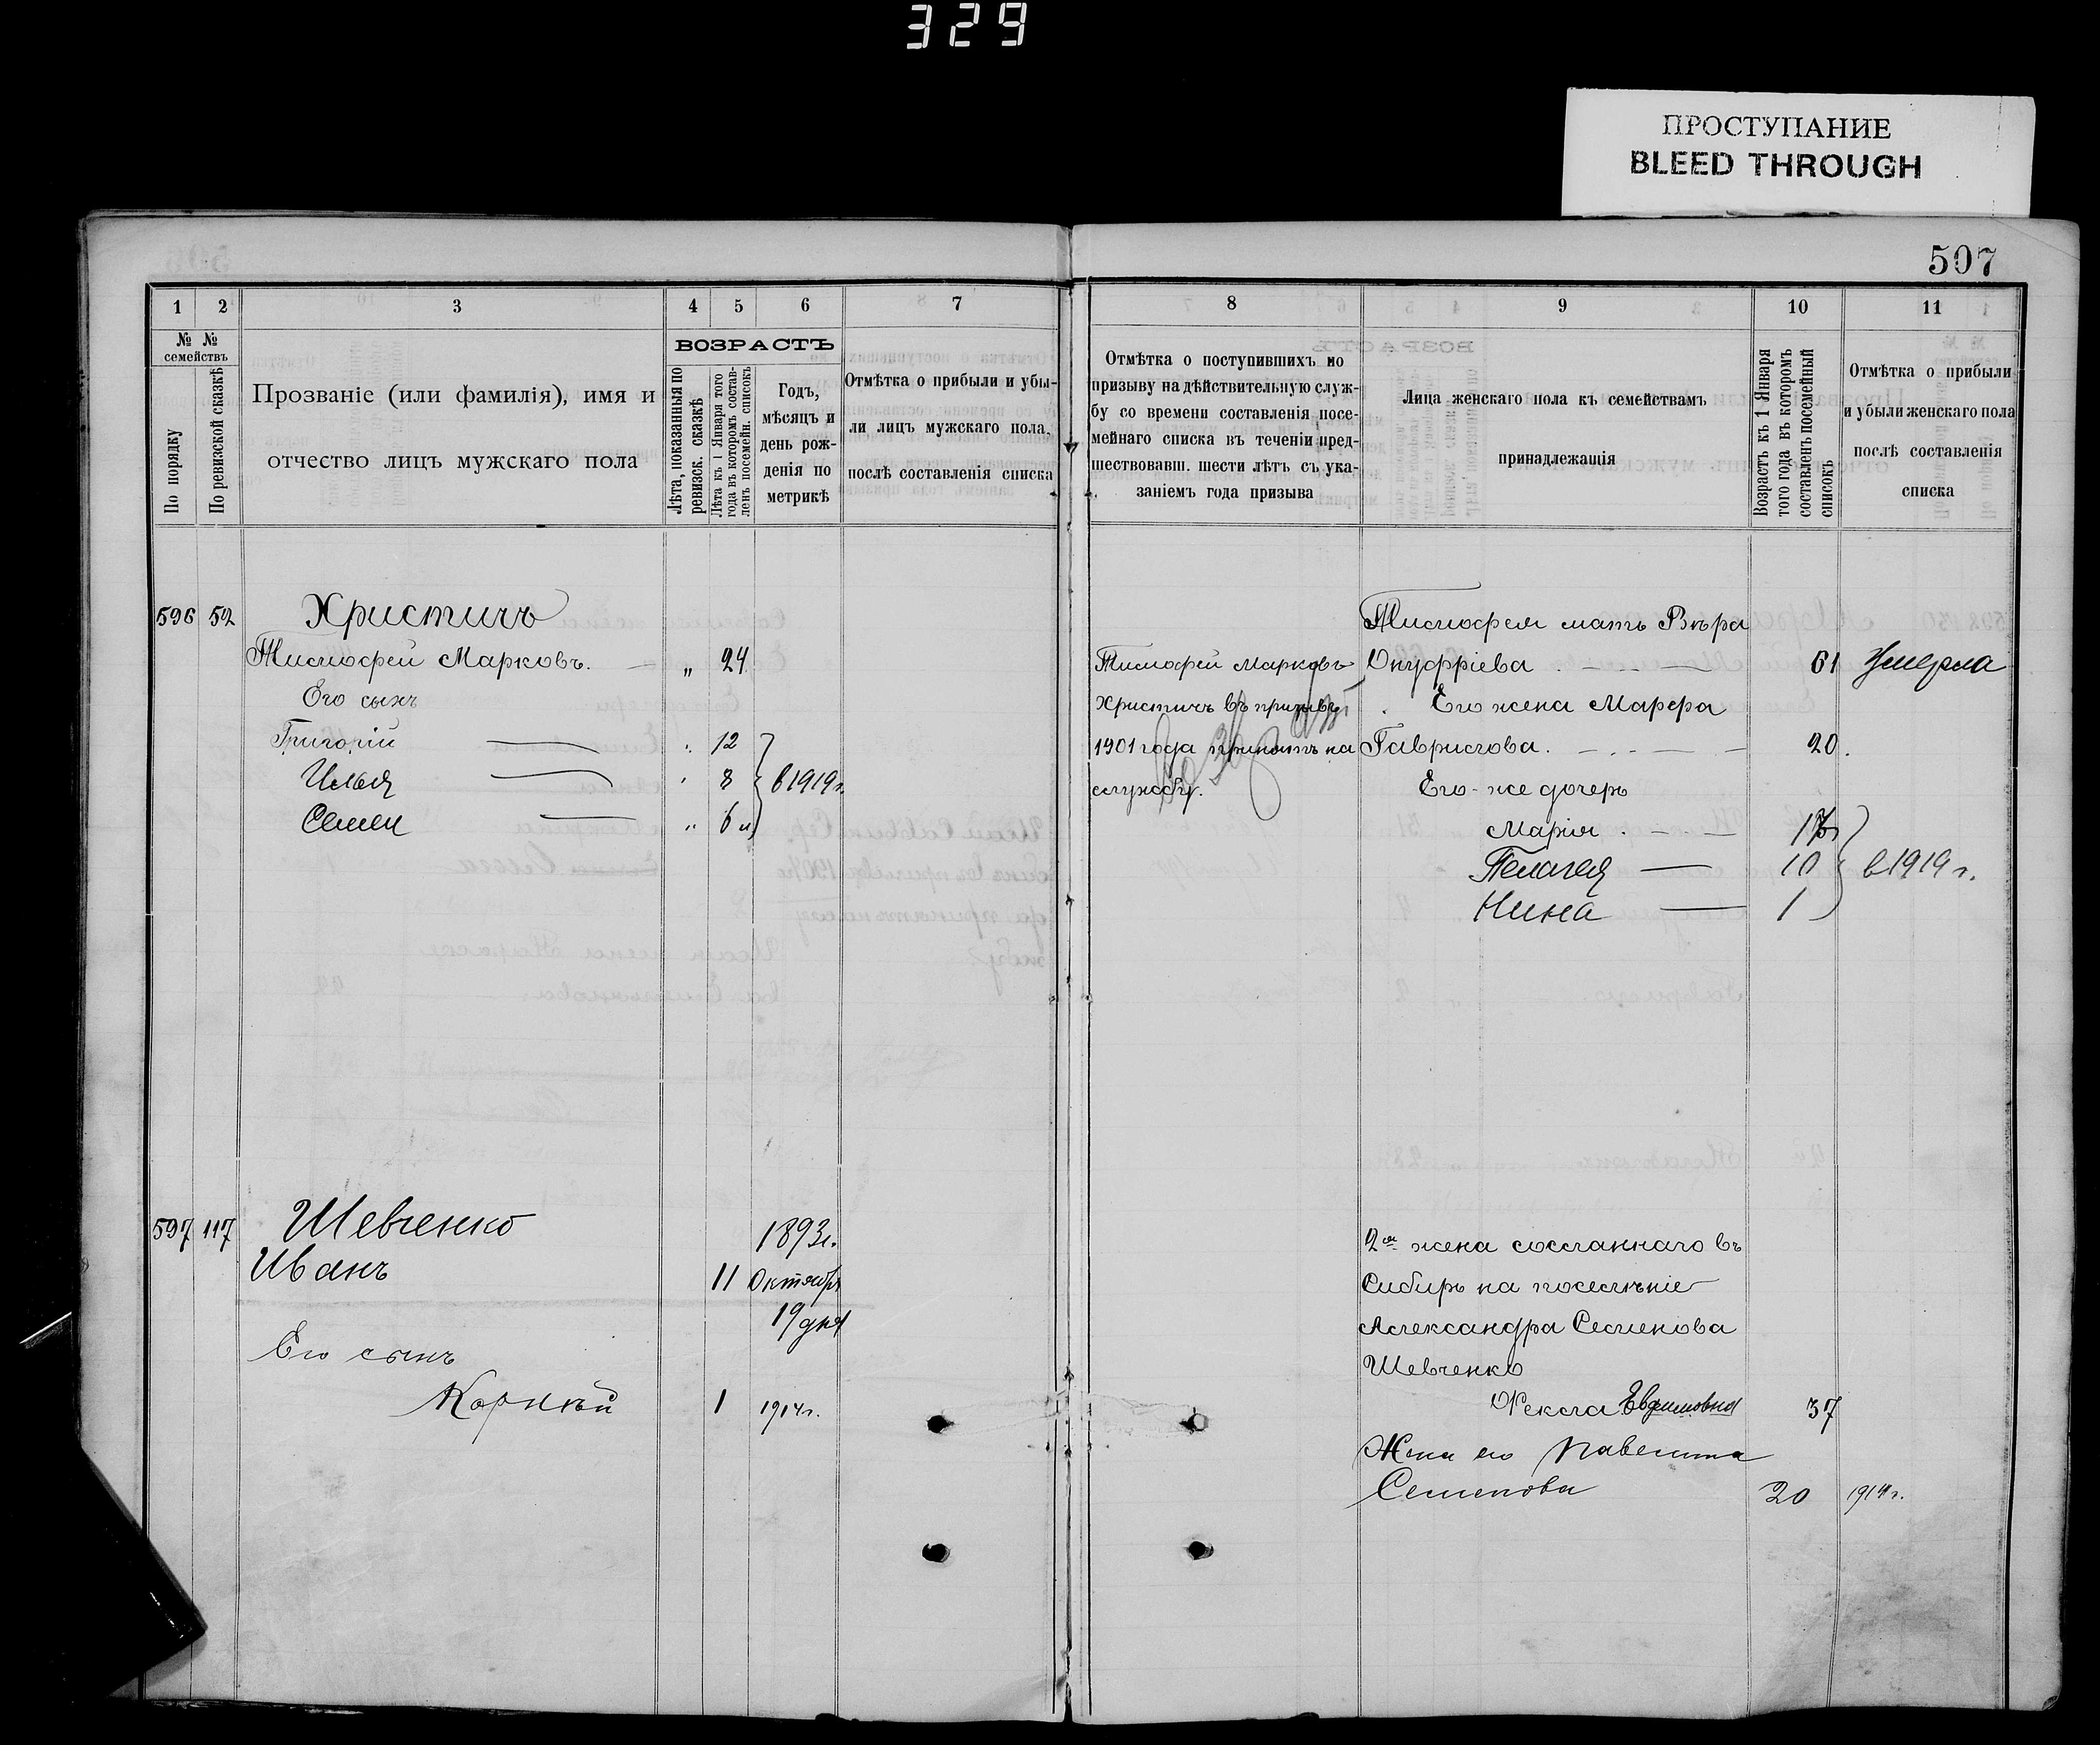 329
ПРОСТУПАНИЕ
BLEED THROUGH
507
1 2 3 4 5 6 7
№ № семействъ
По порядку
По ревизской сказкѣ
Прозваніе (или фамилія), имя и
отчество лицъ мужскаго пола
ВОЗРАСТЪ
Лѣта, показанныя по
ревизск. сказкѣ
Лѣта къ 1 Января того
года въ которомъ состав-
ленъ посемейн. списокъ
Годъ,
мѣсяцъ и
день рож-
денія по
метрикѣ
Отмѣтка о прибыли и убы-
ли лицъ мужскаго пола,
послѣ составленія списка
596 52 Христичъ
Тимофей Марковъ. — „ 24
Его сынъ
Григорій — „ 12
Илья — „ 8 в 1919 г.
Семен — „ 6 м
597 117 Шевченко 1893 г.
Иванъ 11 Октября
19 дня
Его сынъ
Корнѣй 1 1914 г.
8 9 10 11
Отмѣтка о поступившихъ по
призыву на дѣйствительную служ-
бу со времени составленія посе-
мейнаго списка въ теченіи пред-
шествовавш. шести лѣтъ съ ука-
заніемъ года призыва
Лица женскаго пола къ семействамъ
принадлежащія
Возрастъ къ 1 Января
того года въ которомъ
составленъ посемейный
списокъ
Отмѣтка о прибыли
и убыли женскаго пола
послѣ составленія
списка
Тимофей Марковъ
Христичъ въ призывъ
1901 года принятъ на
службу.
Тимофея мать Вѣра
Онуфріева . — 61 Умерла
Его жена Марфа
Гаврилова. — 20.
Его-же дочерь
Марія . —
Пелагея — 10 в 1919 г.
Нина — 1
2ая жена сосланнаго въ
Сибирь на поселѣніе
Александра Семенова
Шевченко
Фекла Евфимовна 37
Жена его
Семенова 20 1914 г.